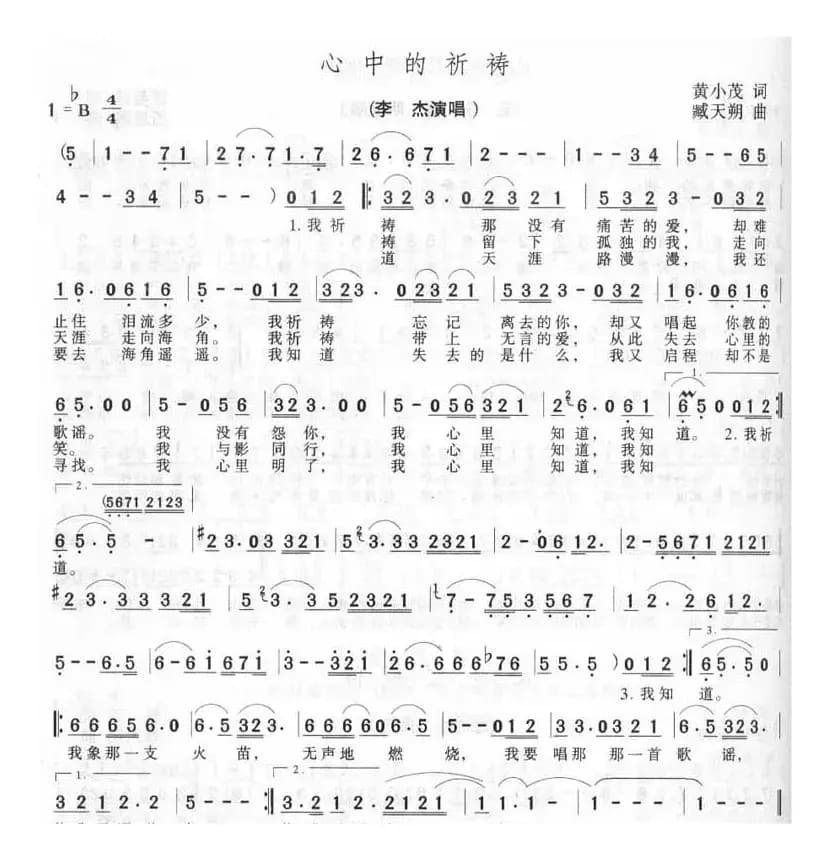 心中的祈祷
1=♭B 4/4
(李 杰演唱)
黄小茂 词
臧天朔 曲
(5 | 1 - - 7 1 | 2 7 · 7 1 · 7 | 2 6 · 6 7 1 | 2 - - - | 1 - - 3 4 | 5 - - 6 5 |
4 - - 3 4 | 5 - - ) 0 1 2 |: 3 2 3 · 0 2 3 2 1 | 5 3 2 3 - 0 3 2 |
1.我祈 祷 那没有 痛苦的爱，却难
祷 留下 孤独的我，走向
道 天涯 路漫漫，我还
1 6 · 0 6 1 6 | 5 - - 0 1 2 | 3 2 3 · 0 2 3 2 1 | 5 3 2 3 - 0 3 2 | 1 6 · 0 6 1 6 |
止住 泪流多少，我祈祷 忘记 离去的你，却又 唱起 你教的
天涯 走向海角。我祈祷 带上 无言的爱，从此 失去 心里的
要去 海角遥遥。我知道 失去的是什么，我又 启程 却不是
1.
6 5 · 0 0 | 5 - 0 5 6 | 3 2 3 · 0 0 | 5 - 0 5 6 3 2 1 | 2 6 · 0 6 1 | 6 5 0 0 1 2 :|
歌谣。 我 没有怨你， 我 心里 知道，我知 道。2.我祈
笑。 我 与影同行， 我 心里 知道，我知
寻找。 我 心里明了， 我 心里 知道，我知
2.
(5671 2123
6 5 · 5 - | #2 3 · 0 3 3 2 1 | 5 3 · 3 3 2 3 2 1 | 2 - 0 6 1 2 · | 2 - 5 6 7 1 2 1 2 1 |
道。
#2 3 · 3 3 3 2 1 | 5 3 · 3 5 2 3 2 1 | 7 - 7 5 3 5 6 7 | 1 2 · 2 6 1 2 · |
3.
5 - - 6 · 5 | 6 - 6 1 6 7 1 | 3 - - 3 2 1 | 2 6 · 6 6 6 ♭7 6 | 5 5 · 5 ) 0 1 2 :| 6 5 · 5 0
3.我知 道。
|: 6 6 6 5 6 · 0 | 6 · 5 3 2 3 · | 6 6 6 6 0 6 · 5 | 5 - - 0 1 2 | 3 3 · 0 3 2 1 | 6 · 5 3 2 3 · |
我象那一支 火苗， 无声地 燃 烧，我要 唱那 那一首 歌谣，
1.
2.
3 2 1 2 · 2 | 5 - - - :| 3 · 2 · 2 2 1 2 1 | 1 - - - | 1 - - - | 1 - - - |